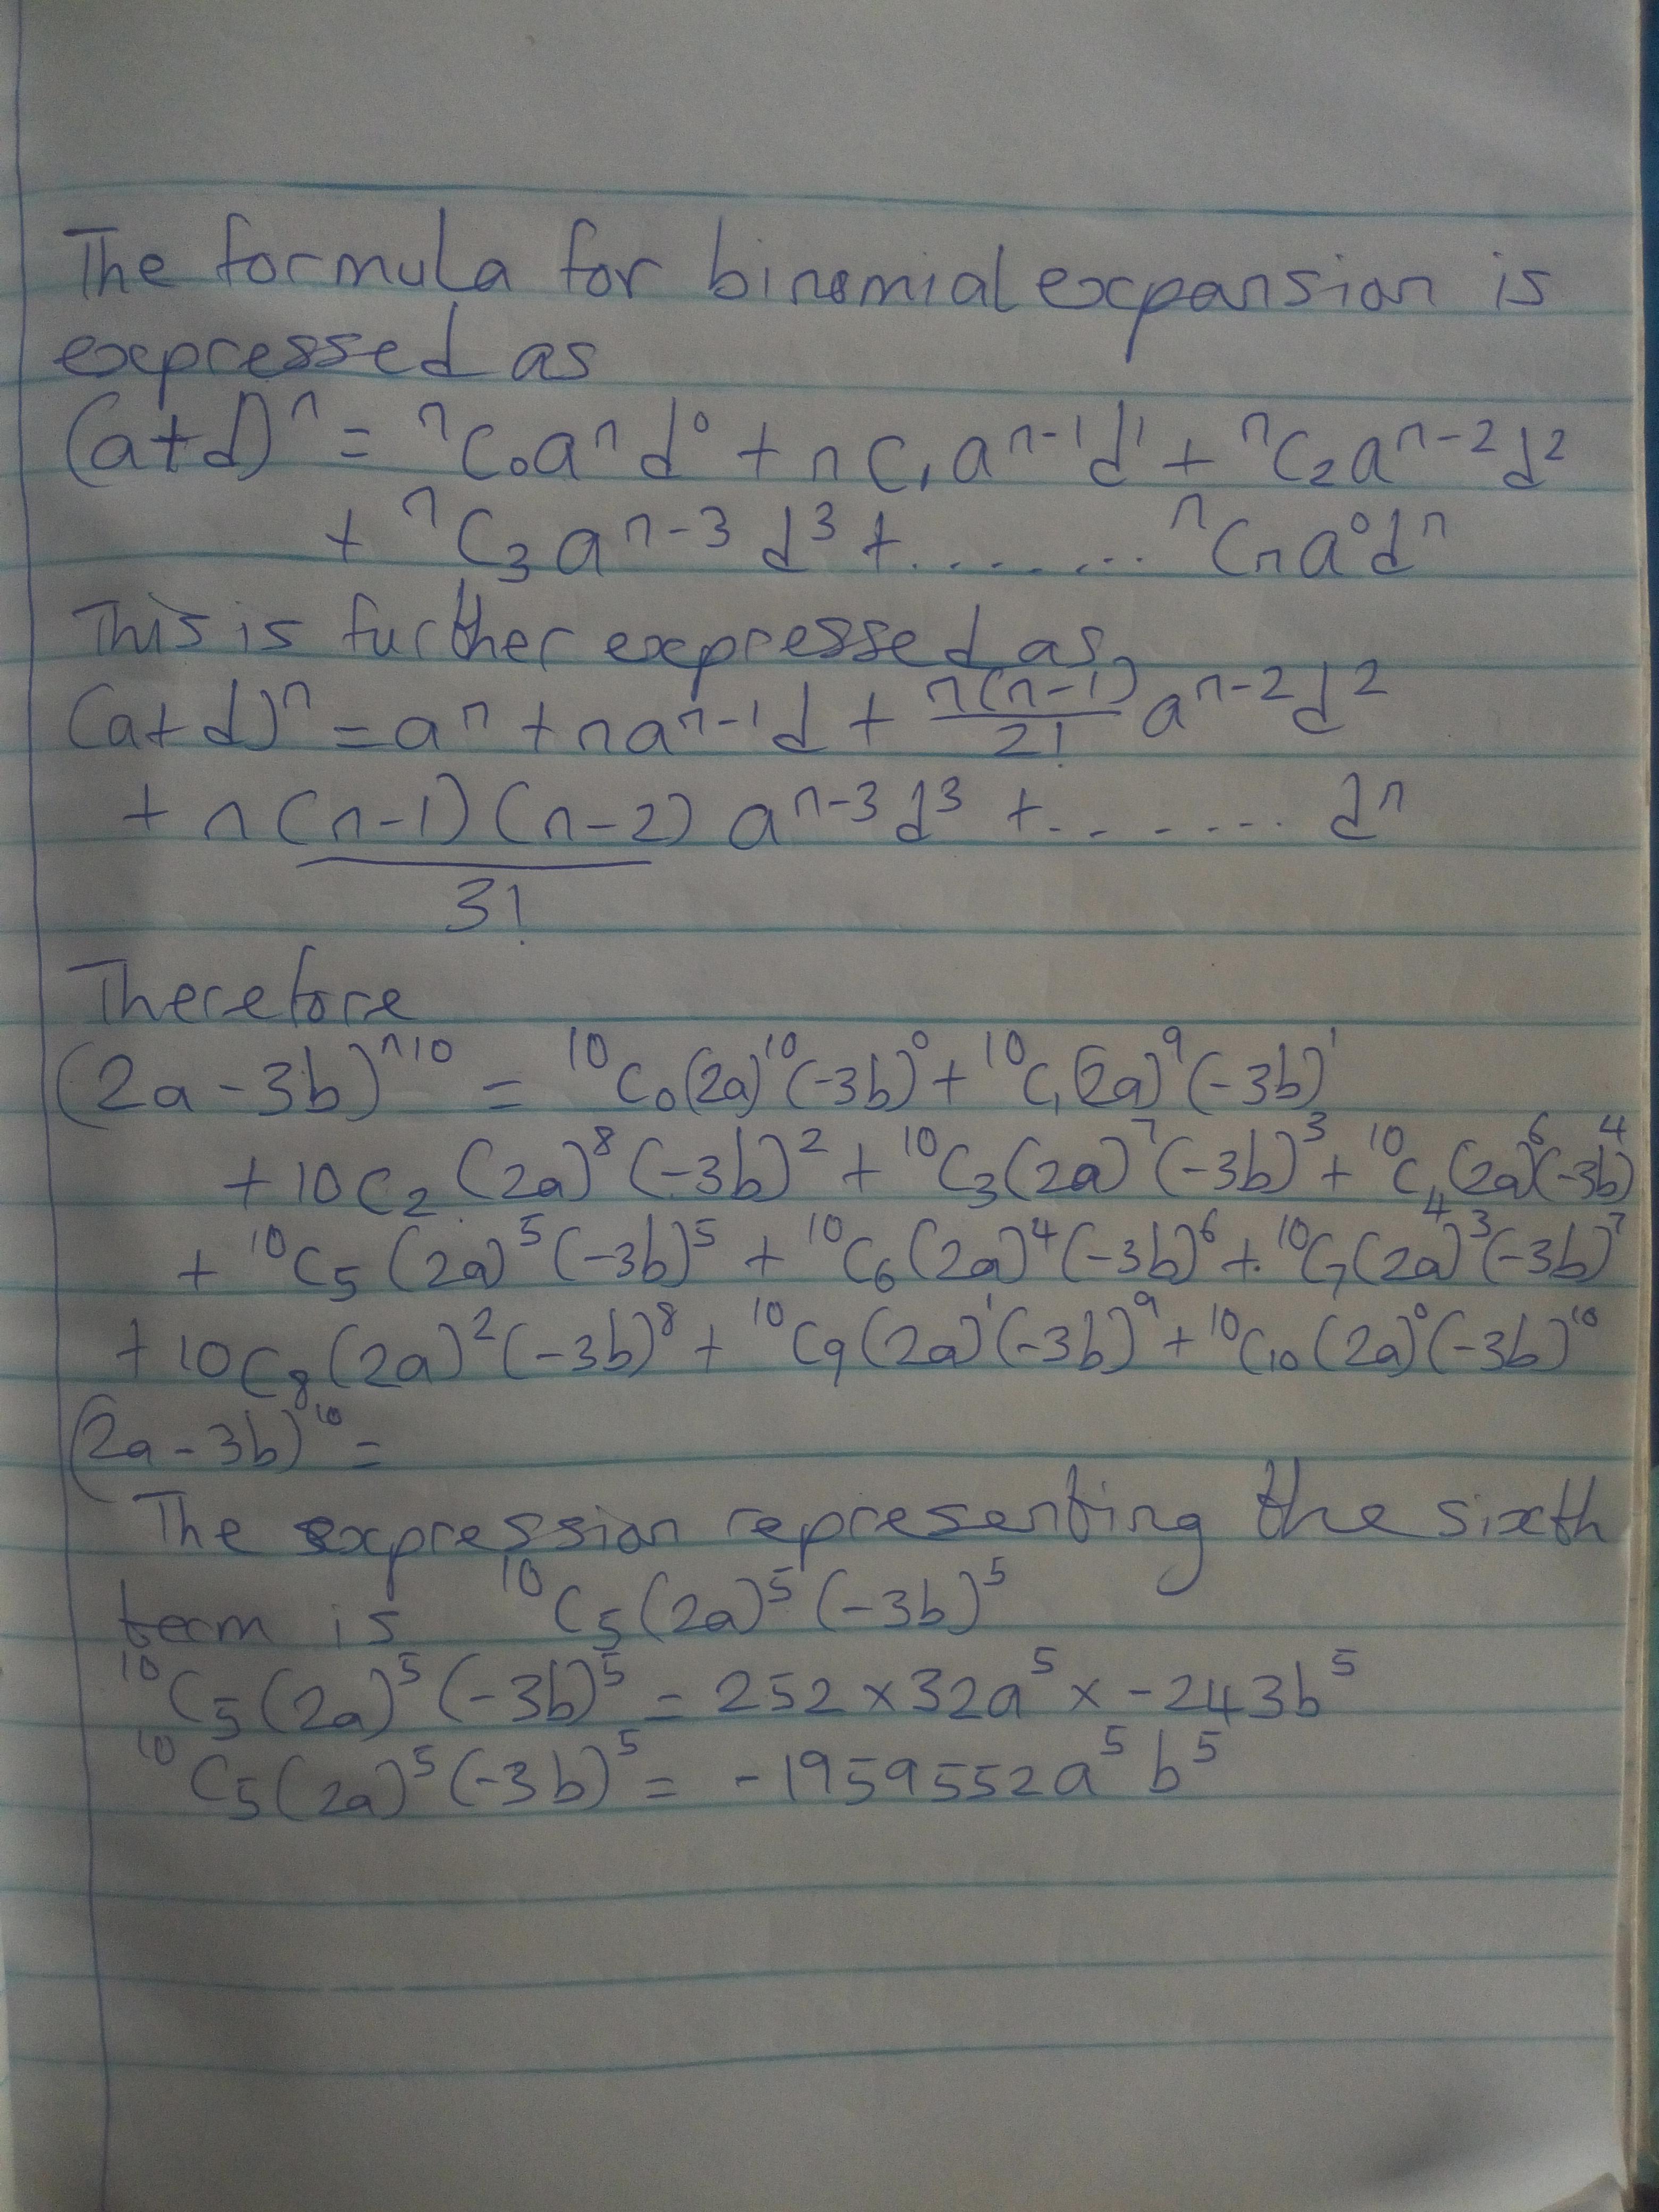 The formula for binomial expansion is
expressed as
(a+d)ⁿ = ⁿC₀aⁿd⁰ + nC₁aⁿ⁻¹d¹ + ⁿC₂aⁿ⁻²d²
+ ⁿC₃aⁿ⁻³d³ +........ ⁿCₙa⁰dⁿ
This is further expressed as,
(a+d)ⁿ = aⁿ + naⁿ⁻¹d + n(n-1)/2! aⁿ⁻²d²
+ n(n-1)(n-2)/3! aⁿ⁻³d³ +....... dⁿ
Therefore
(2a-3b)ⁿ¹⁰ = ¹⁰C₀(2a)¹⁰(-3b)⁰ + ¹⁰C₁(2a)⁹(-3b)¹
+ 10C₂(2a)⁸(-3b)² + ¹⁰C₃(2a)⁷(-3b)³ + ¹⁰C₄(2a)⁶(-3b)⁴
+ ¹⁰C₅(2a)⁵(-3b)⁵ + ¹⁰C₆(2a)⁴(-3b)⁶ + ¹⁰C₇(2a)³(-3b)⁷
+ 10C₈(2a)²(-3b)⁸ + ¹⁰C₉(2a)¹(-3b)⁹ + ¹⁰C₁₀(2a)⁰(-3b)¹⁰
(2a-3b)¹⁰ =
The expression representing the sixth
term is ¹⁰C₅(2a)⁵(-3b)⁵
¹⁰C₅(2a)⁵(-3b)⁵ = 252 × 32a⁵ × -243b⁵
¹⁰C₅(2a)⁵(-3b)⁵ = -1959552a⁵b⁵